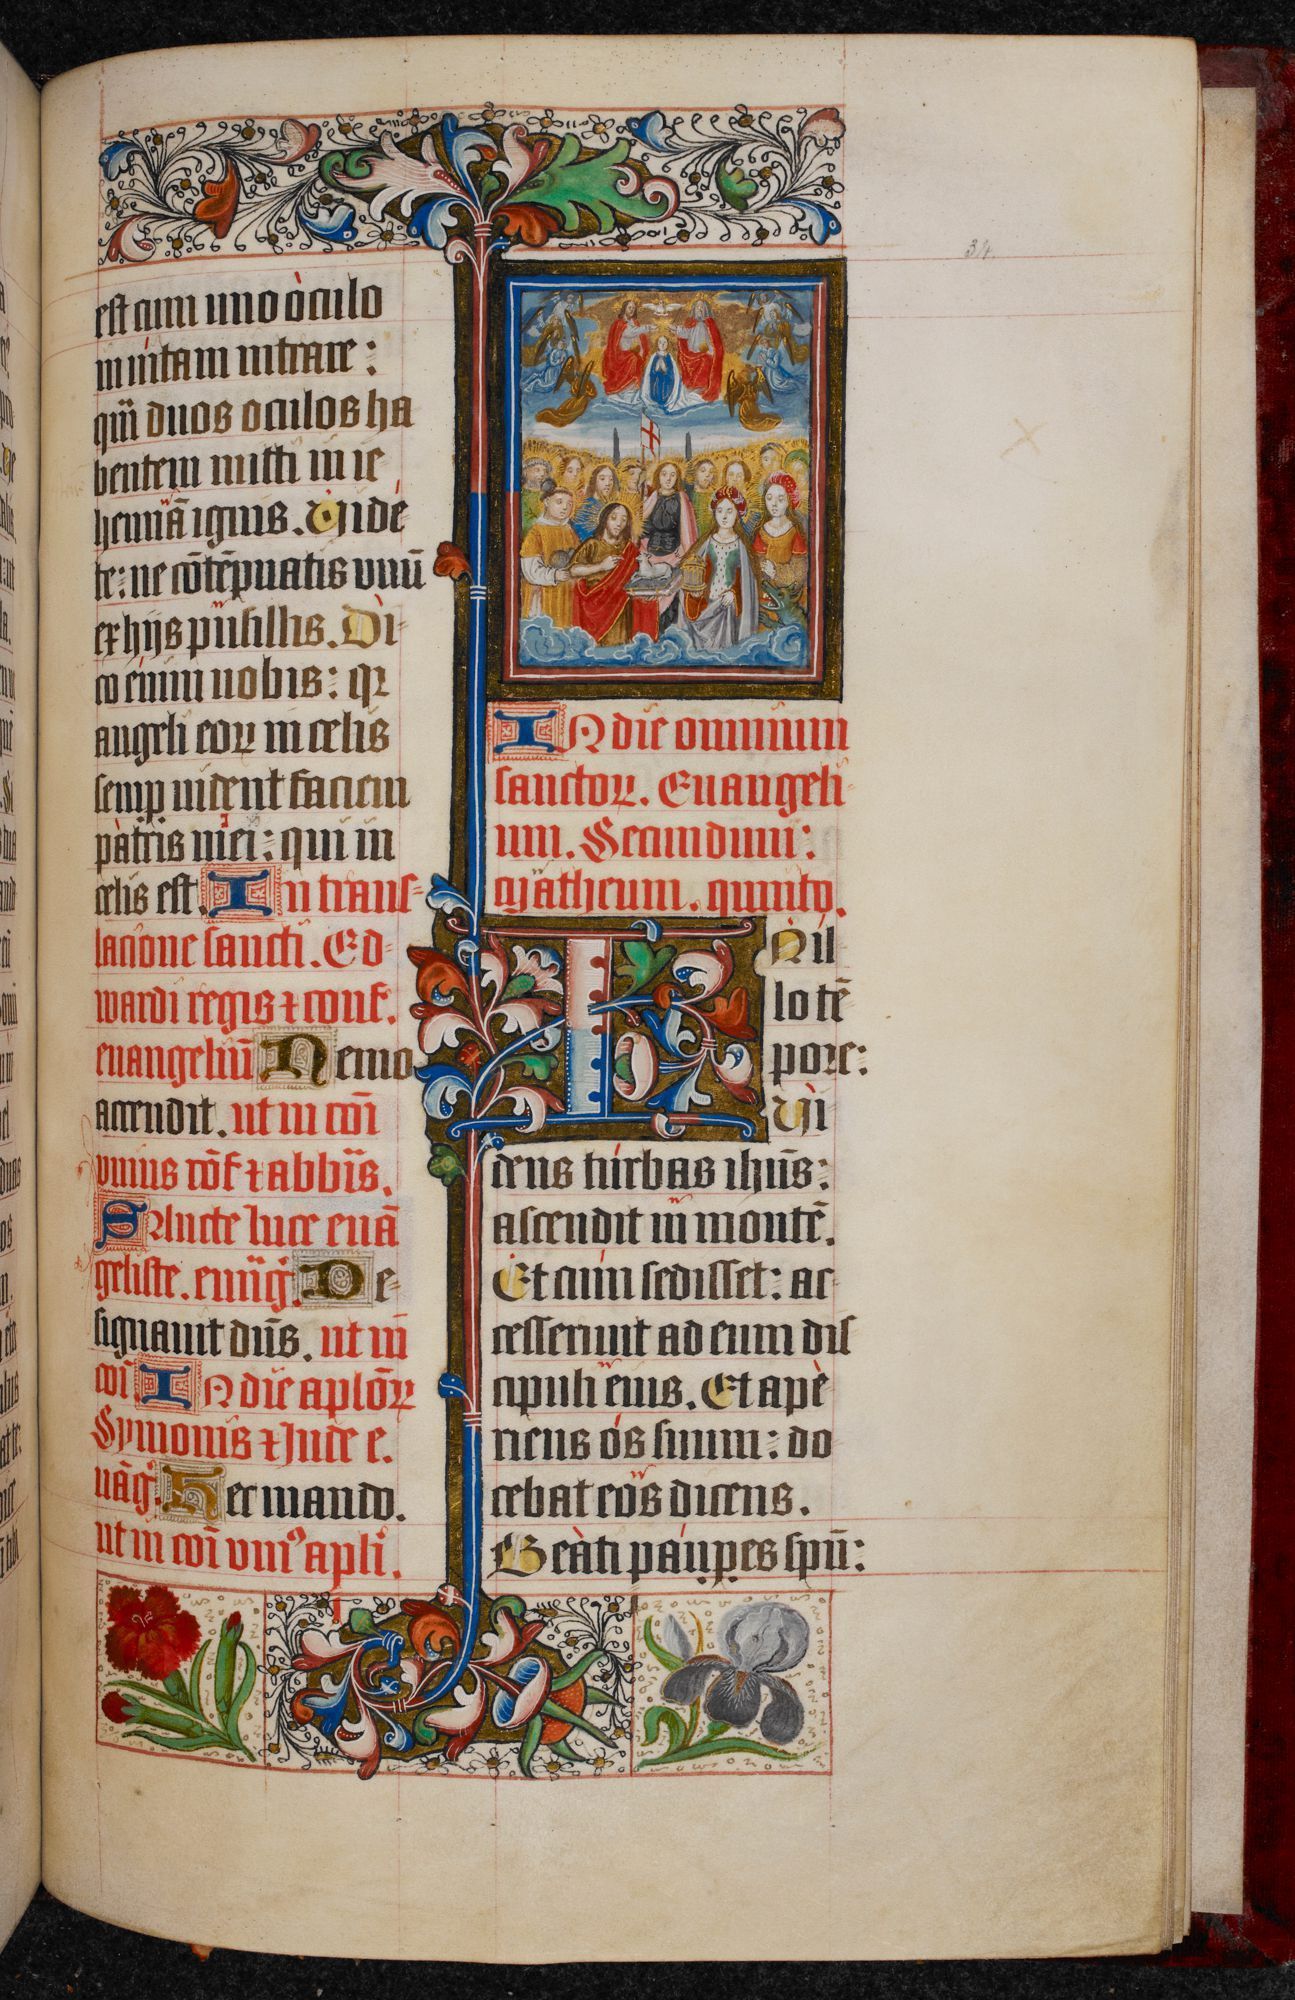 est cum uno oculo
in uitam intrare:
qm̄ duos oculos ha
bentem mitti in ie
hennā ignis. Vidé
te: ne cōtēpnatis vnū
ex hijs pusillis. Di-
co enim uobis: qꝛ
angeli eoꝝ in celis
semꝑ uident faciem
patris mei: qui in
celis est. In trans-
lacione sancti. Ed-
wardi regis ⁊ conf.
euangeliū Nemo
accendit. ut in cōi
vnius cōf ⁊ abbis.
Sancte luce euā
geliste. De-
signauit dn̄s. ut in
cōi. In die aplōꝝ
Symonis ⁊ Jude e.
uāg. Hec mando.
ut in cōi vniꝰ apli.
34.
In die omnium
sanctoꝝ. Euangeli
um. Secundum:
Matheum. quinto.
IN il
lo tē
pore:
Vi
dens turbas ihūs:
ascendit in montē.
Et cum sedisset: ac-
cesserunt ad eum dis
cipuli eius. Et apè
riens ós suum: do
cebat eos dicens.
Beàti páuꝑes spū: